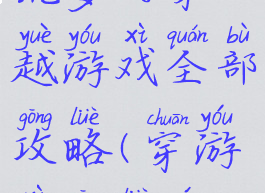 yuè yóu xì quán bù
越游戏全部
gōng lüè chuān yóu
攻略(穿游